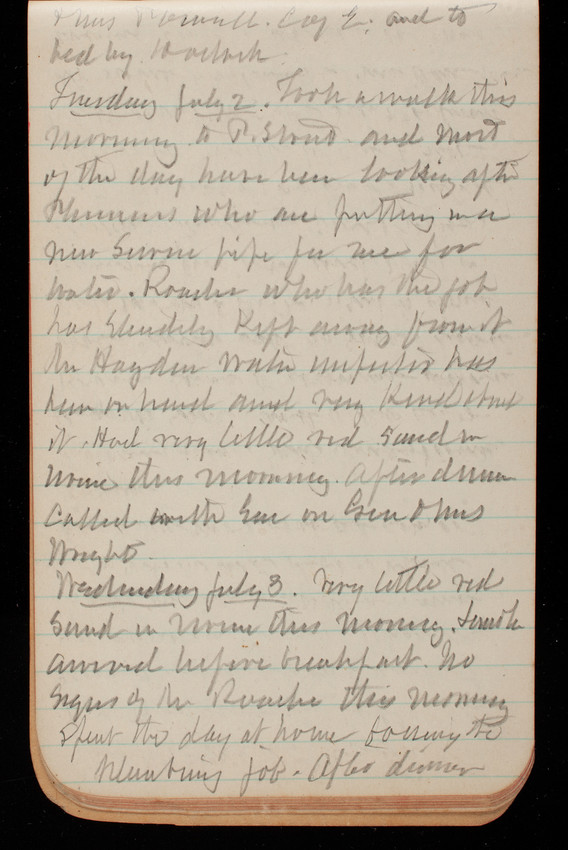 & Mrs Powell. Coz E. and to
bed by 10 oclock.
Tuesday July 2. Took a walk this
morning to P. Stons and most
of the day have been looking after
Plumers who are putting in a
new Service pipe for me for
water. Roache who has the job
has Steadily Kept away from it
Mr Hayden water inspector has
been on hand and very Kind about
it. Had very little red Sand in
urine this morning. After dinner
Called with Eve on Gen & Mrs
Wright.
Wednesday July 3. Very little red
Sand in Urine this morning.
arrived before breakfast. No
Signs of Mr Roache this morning
Spent the day at home bossing the
Plumbing job. After dinner